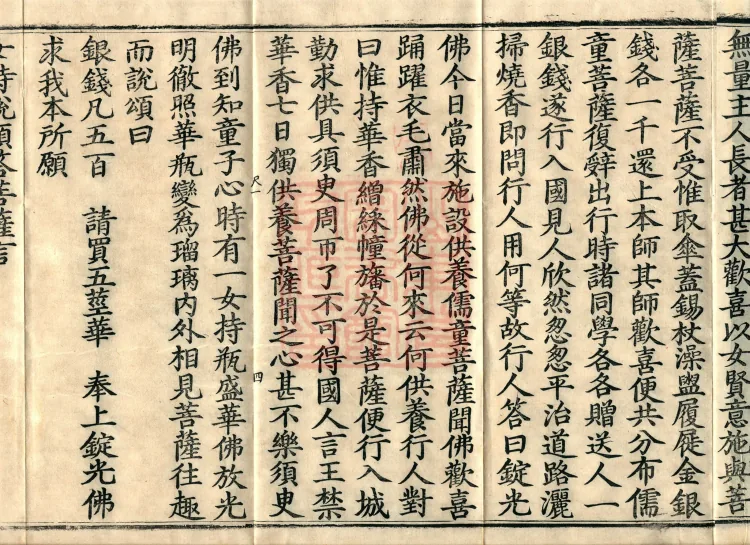 無量主人長者甚大歡喜以女賢意施與菩
薩菩薩不受惟取傘蓋錫杖澡盥履屣金銀
錢各一千還上本師其師歡喜便共分布儒
童菩薩復辭出行時諸同學各各贈送人一
銀錢遂行入國見人欣然怱怱平治道路灑
掃燒香即問行人用何等故行人答曰錠光
佛今日當來施設供養儒童菩薩聞佛歡喜
踊躍衣毛肅然佛從何來云何供養行人對
曰惟持華香繒綵幢旛於是菩薩便行入城
勤求供具須臾周帀了不可得國人言王禁
尺一
四
華香七日獨供養菩薩聞之心甚不樂須臾
佛到知童子心時有一女持瓶盛華佛放光
明徹照華瓶變為瑠璃內外相見菩薩往趣
而說頌曰
銀錢凡五百 請買五莖華 奉上錠光佛
求我本所願
女時說頌答菩薩言